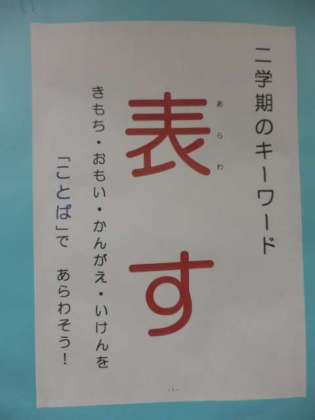 二学期のキーワード
あらわ
表す
きもち・おもい・かんがえ・いけんを
「ことば」で あらわそう！